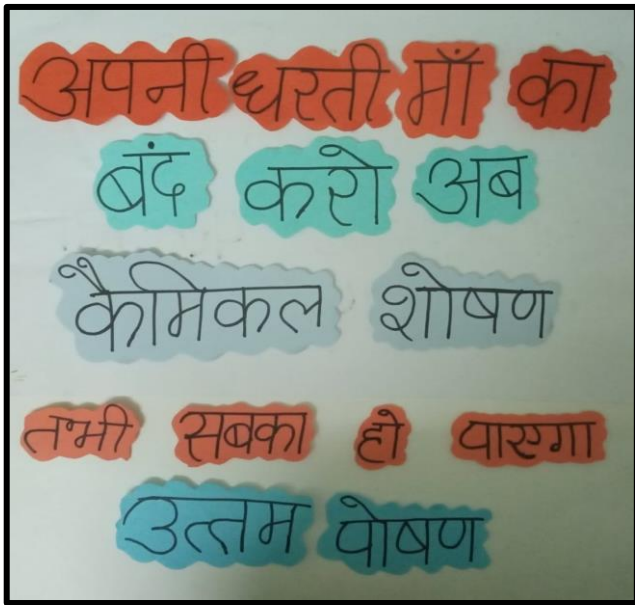 अपनी धरती माँ का
बंद करो अब
कैमिकल शोषण
तभी सबका हो पाएगा
उत्तम पोषण